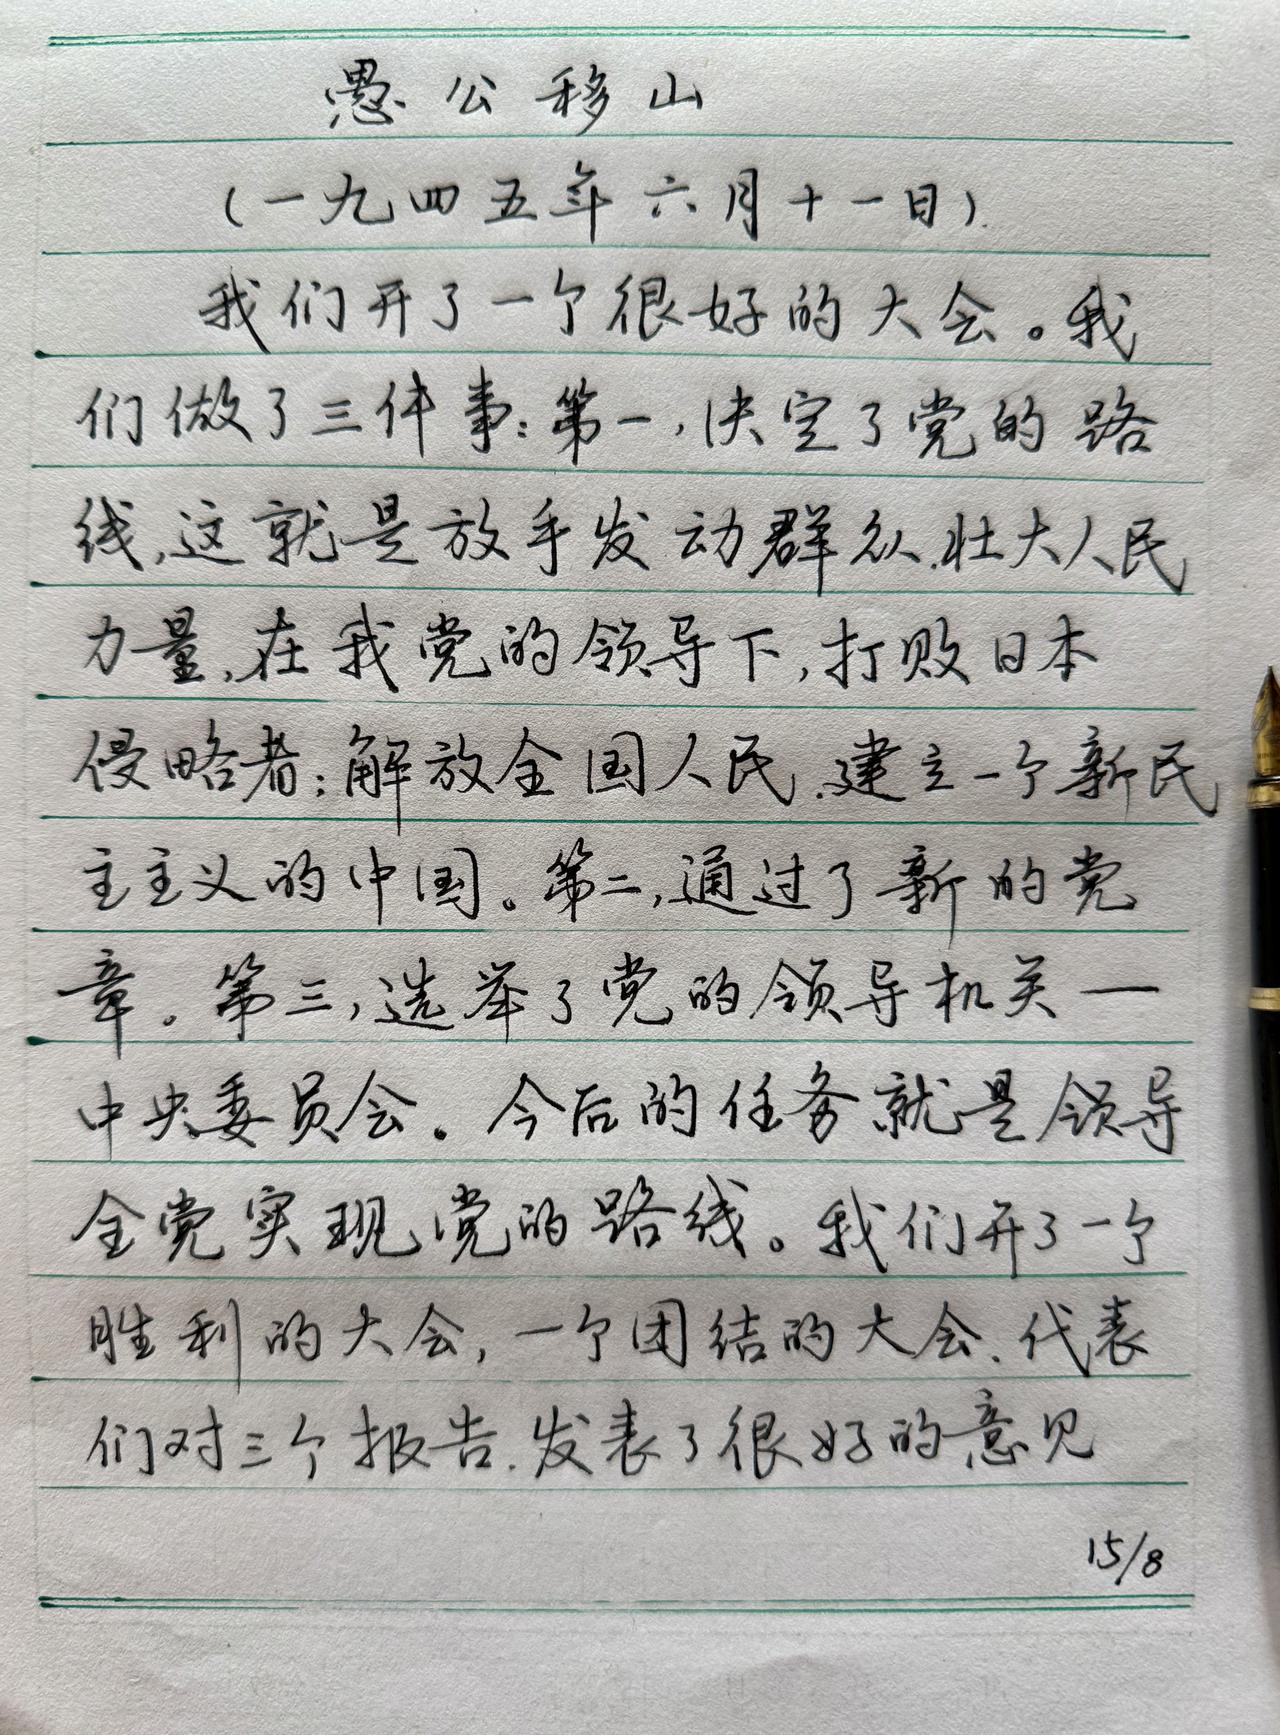 愚公移山
(一九四五年六月十一日).
我们开了一个很好的大会。我
们做了三件事:第一,决定了党的路
线,这就是放手发动群众,壮大人民
力量,在我党的领导下,打败日本
侵略者;解放全国人民,建立一个新民
主主义的中国。第二,通过了新的党
章。第三,选举了党的领导机关—
中央委员会。今后的任务就是领导
全党实现党的路线。我们开了一个
胜利的大会,一个团结的大会.代表
们对三个报告.发表了很好的意见
15/8